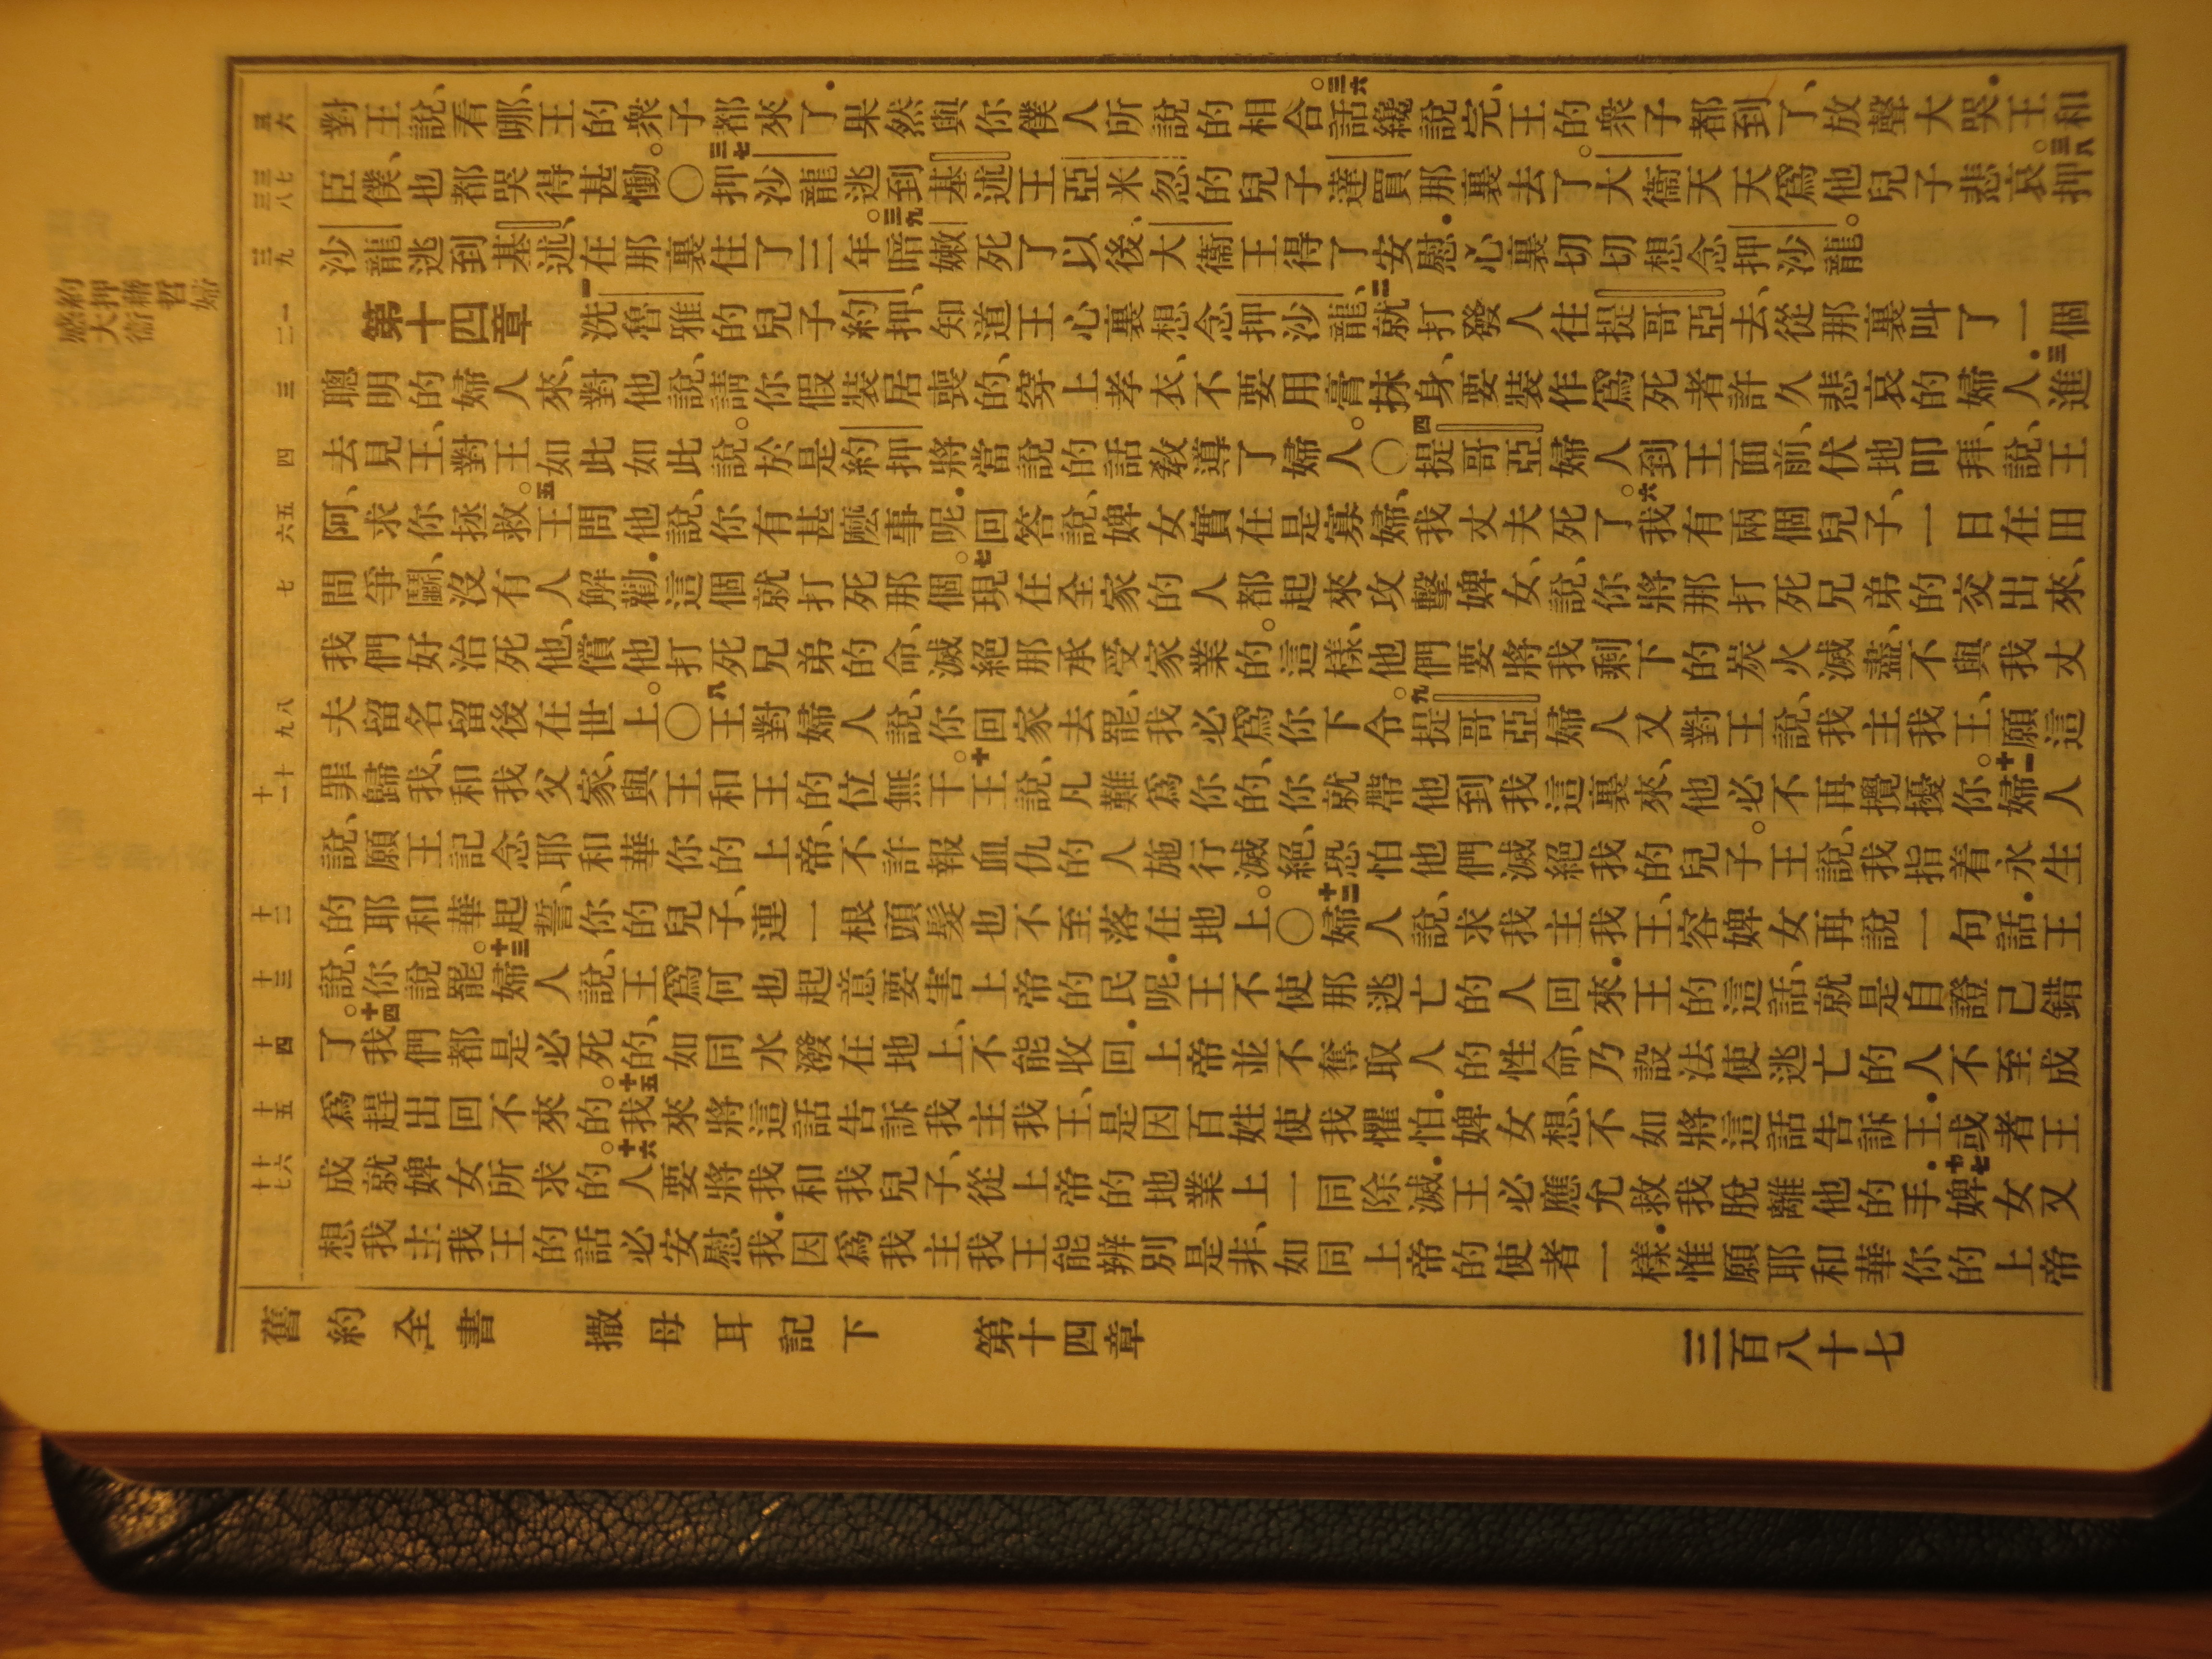 惑約
大押
衞藉
哲
婦
三六
對王說、看哪、王的衆子都來了．果然與你僕人所說的相合。三六話纔說完、王的衆子都到了、放聲大哭．王和
三七
三八
臣僕、也都哭得甚慟。〇三七押沙龍逃到基述王亞米忽的兒子達買那裏去了。大衞天天爲他兒子悲哀。三八押
三九
沙龍逃到基述、在那裏住了三年。三九暗嫩死了以後、大衞王得了安慰．心裏切切想念押沙龍。
一
二
第十四章 一洗魯雅的兒子約押、知道王心裏想念押沙龍、二就打發人往提哥亞去、從那裏叫了一個
三
聰明的婦人來、對他說、請你假裝居喪的、穿上孝衣、不要用膏抹身、要裝作爲死者許久悲哀的婦人．三進
四
去見王、對王如此如此說。於是約押將當說的話敎導了婦人。〇四提哥亞婦人到王面前、伏地叩拜、說、王
五
六
阿、求你拯救。五王問他說、你有甚麽事呢．回答說、婢女實在是寡婦、我丈夫死了。六我有兩個兒子、一日在田
七
間爭鬭、沒有人解勸．這個就打死那個。七現在全家的人都起來攻擊婢女、說、你將那打死兄弟的交出來、
我們好治死他、償他打死兄弟的命、滅絕那承受家業的。這樣、他們要將我剩下的炭火滅盡、不與我丈
八
九
夫留名留後在世上。〇八王對婦人說、你回家去罷、我必爲你下令。九提哥亞婦人又對王說、我主我王、願這
十
十一
罪歸我、和我父家、與王和王的位無干。十王說、凡難爲你的、你就帶他到我這裏來、他必不再攪擾你。十一婦人
說、願王記念耶和華你的上帝、不許報血仇的人施行滅絕、恐怕他們滅絕我的兒子。王說、我指着永生
十二
的耶和華起誓、你的兒子、連一根頭髮也不至落在地上。〇十二婦人說、求我主我王、容婢女再說一句話．王
十三
說、你說罷。十三婦人說、王爲何也起意要害上帝的民呢．王不使那逃亡的人回來．王的這話、就是自證已錯
十四
了。十四我們都是必死的、如同水潑在地上、不能收回．上帝並不奪取人的性命、乃設法使逃亡的人不至成
十五
爲趕出回不來的。十五我來將這話告訴我主我王、是因百姓使我懼怕．婢女想、不如將這話告訴王．或者王
十六
十七
成就婢女所求的。十六人要將我和我兒子、從上帝的地業上一同除滅．王必應允救我脫離他的手．十七婢女又
想我主我王的話必安慰我．因爲我主我王能辨別是非、如同上帝的使者一樣．惟願耶和華你的上帝
舊約全書 撒母耳記下 第十四章 三百八十七